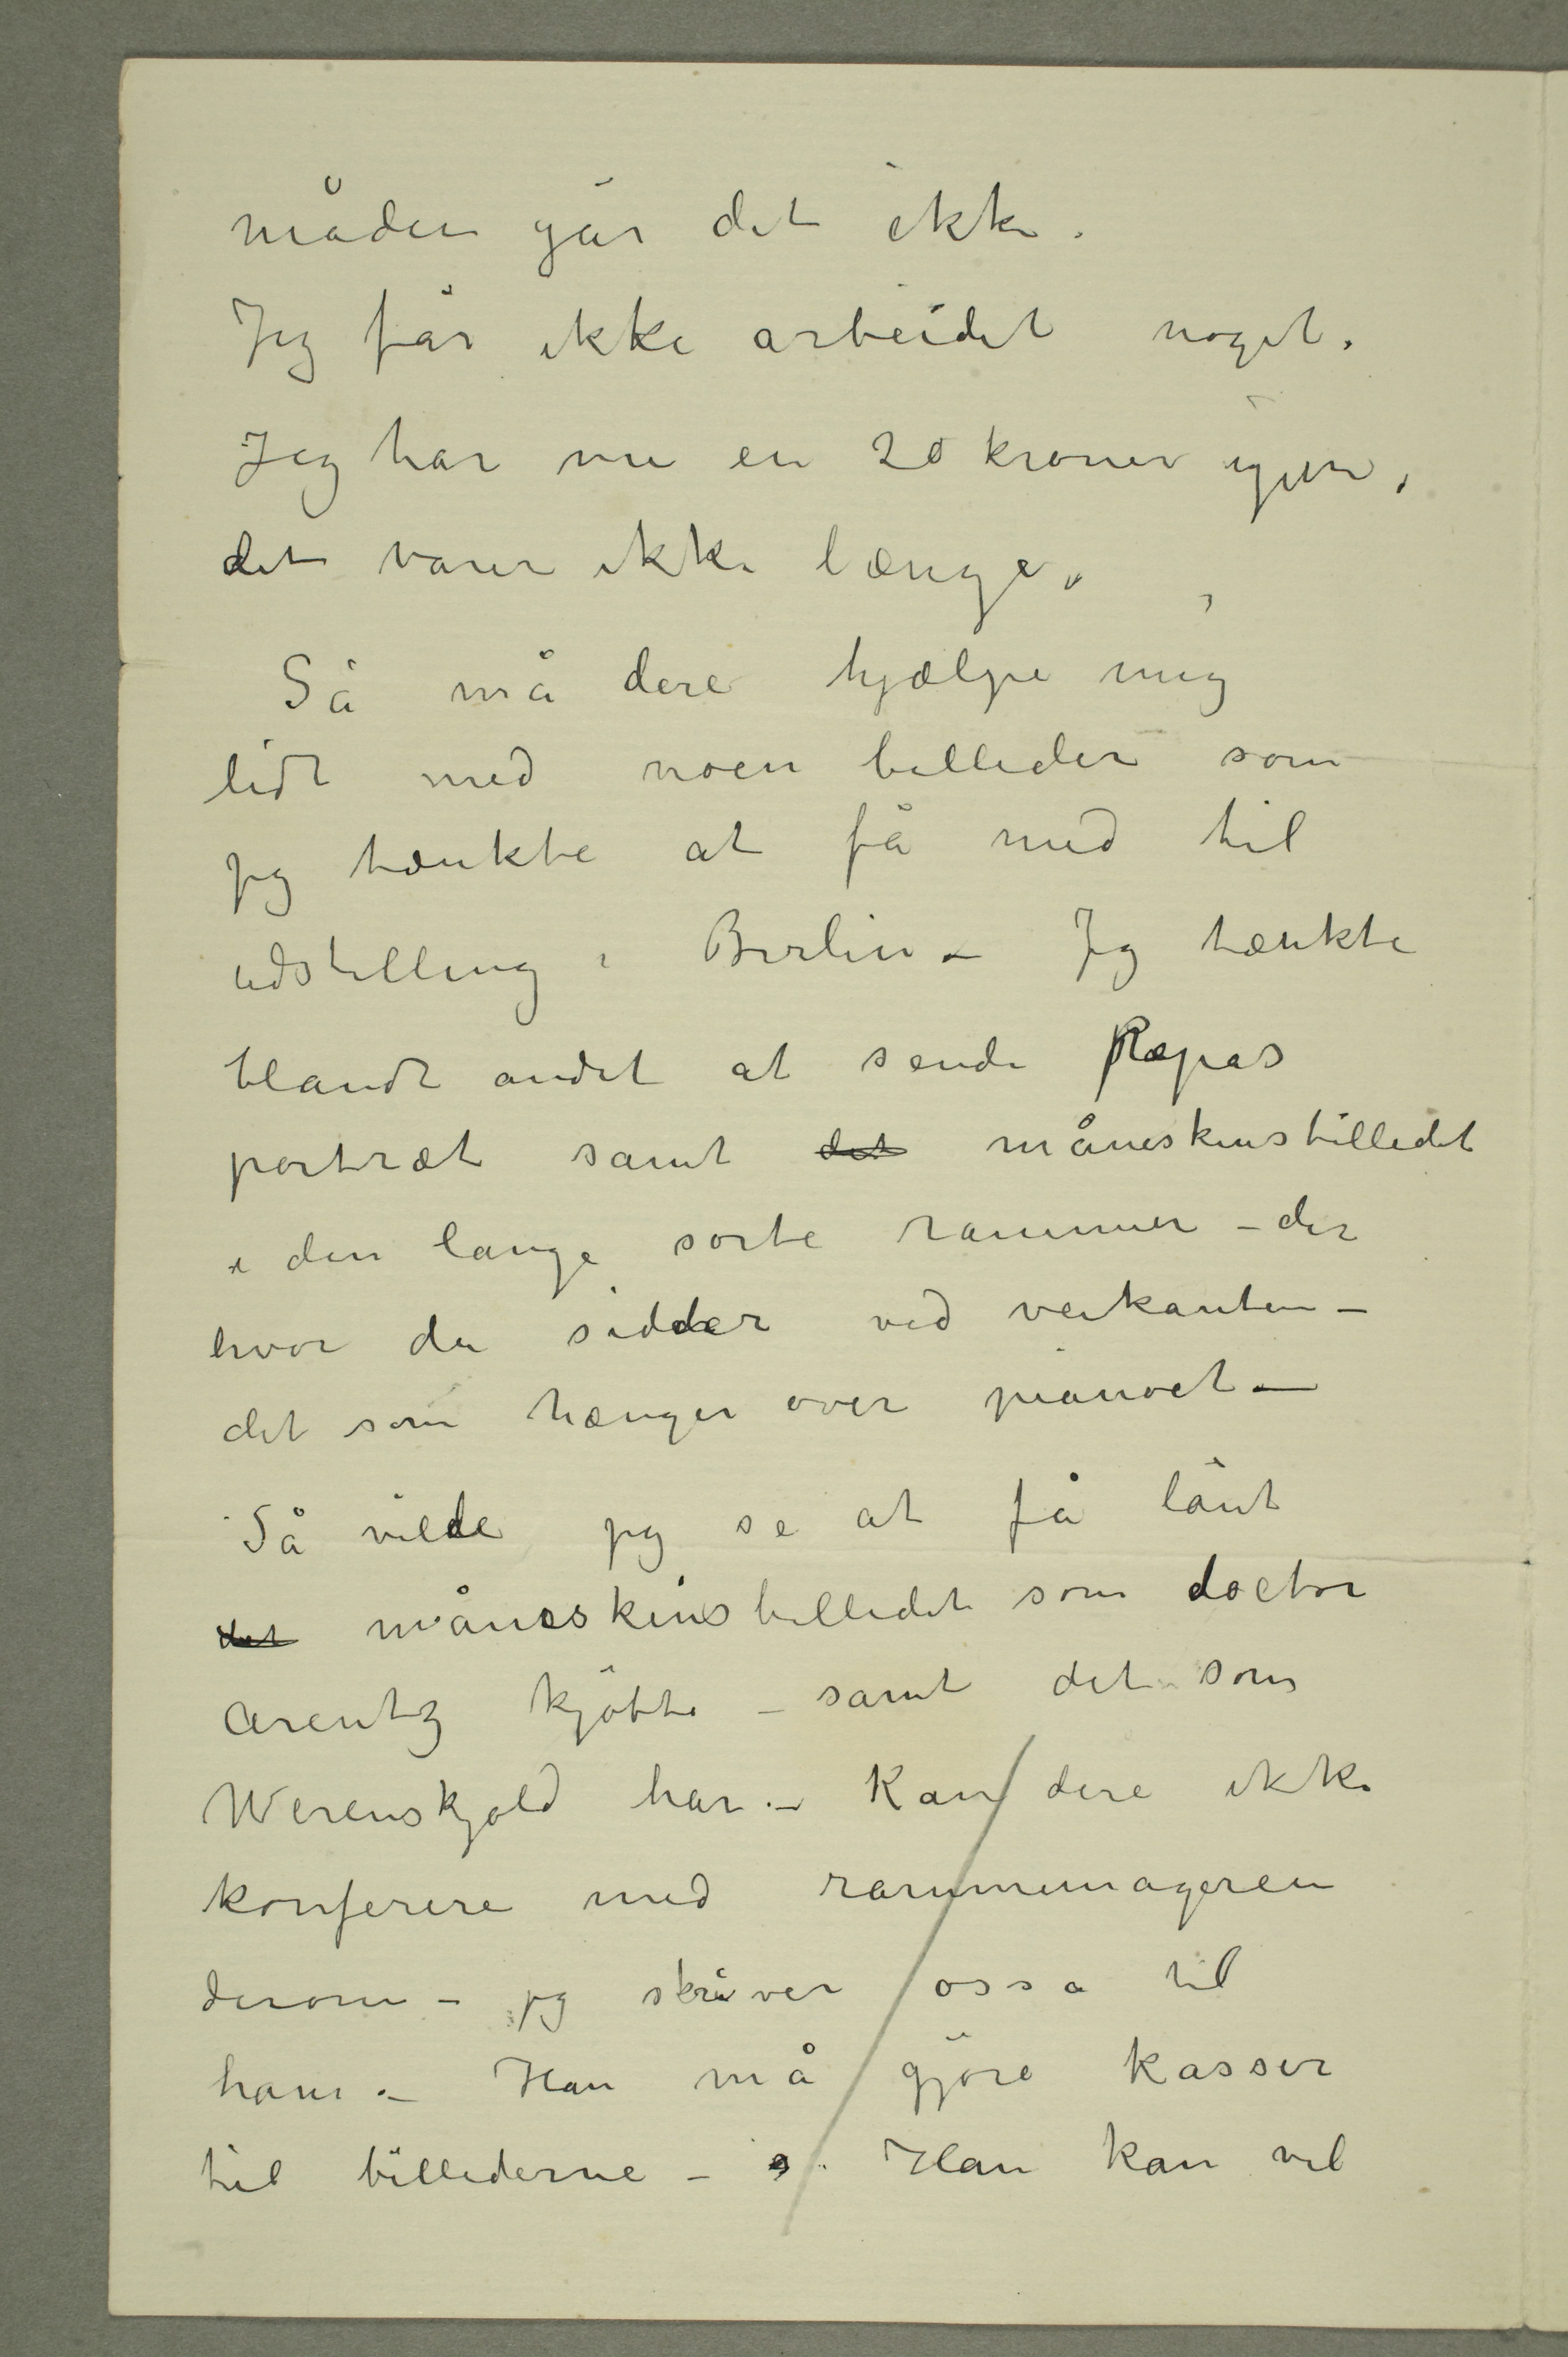 måden går det ikke.
Jeg får ikke arbeidet noget.
Jeg har nu en 20 kroner igjen,
det varer ikke længe.
Så må dere hjælpe mig
lidt med noen billeder som
jeg tænkte at få med til
udstilling i Berlin – Jeg tænkte
blandt andet at sende Papas
portræt samt det måneskinsbilledet
i den lange sorte rammen – der
hvor du sidder ved veikanten –
det som hænger over pianoet –
Så vilde jeg se at få lånt
det måneskinsbilledet som doctor
Arentz kjøbte – samt det som
Werenskjold har. – Kan dere ikke
konferere med rammemageren
derom – jeg skriver osså til
ham. – Han må gjøre kasser
til billederne – Han kan vel